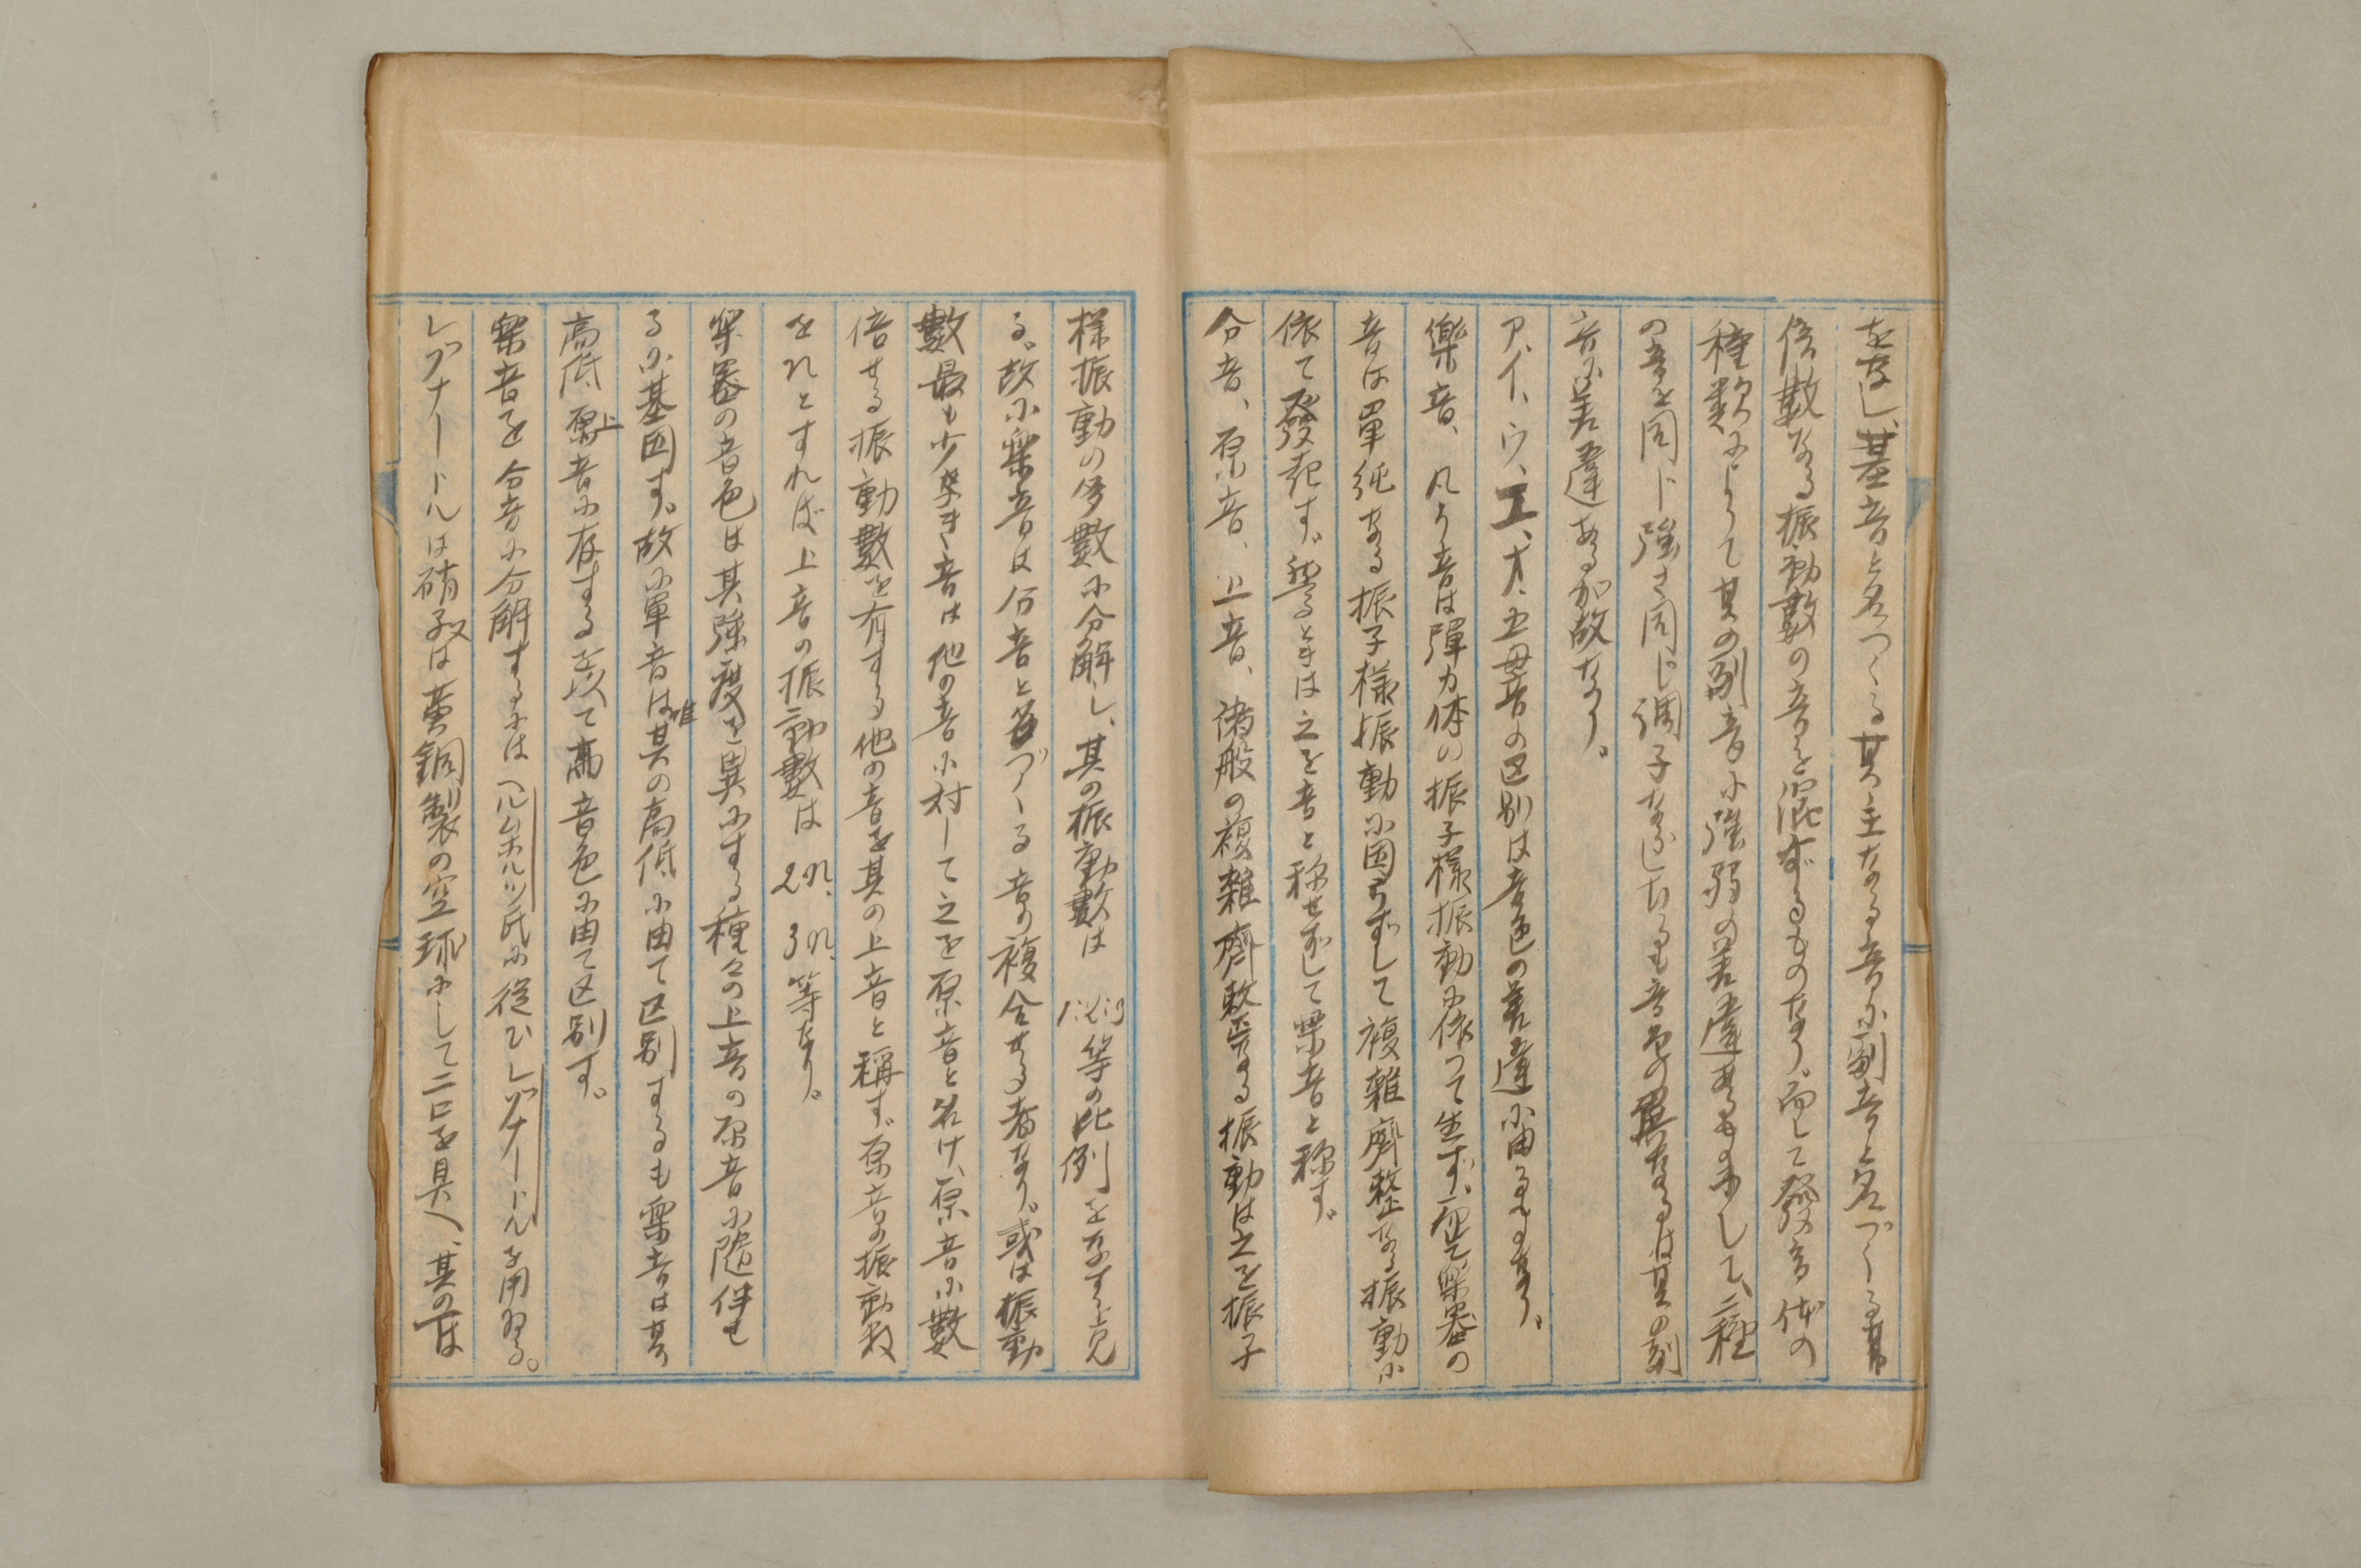 をなし、基音と名つくる其主なる音に副音と名づくる其
倍數なる振動數の音を混ずるものなり。而して發音体の
種類によりて其の副音に強弱の差違あるものにして、二種
の音を同じ強さ同じ調子ならしむるも音色の異なるは其の副
音に差違あるが故なり。
ア、イ、ウ、エ、オ、五母音の区別は音色の差違に由るものなり。
樂音、凡そ音は彈力体の振子様振動に依つて生ず、而して樂器の
音は單純なる振子様振動に因らずして複雜齊整なる振動に
依て發起す。然るときは之を音と称せずして樂音と称す。
分音、原音、上音、諸般の複雜齊整なる振動は之を振子
様振動の多數に分解し、其の振動數は1:2:3等の比例をなすを見
る。故に樂音は分音と名づくる音の複合せる者なり。或は振動
數最も少なき音は他の音に対して之を原音と名け、原音に數
倍せる振動數を有する他の音を其の上音と稱す。原音の振動数
をnとすれば上音の振動數は2n、3n、等なり。
樂器の音色は其強度を異にする種々の上音の原音に隨伴せ
るに基因す。故に單音は唯其の高低に由て区別するも樂音は其
高低原上音に存するを以て高音色に由て区別す。
樂音を分音に分解するには ヘルムホルツ氏に從ひレゾナートルを用ゐる。
レゾナートルは硝子又は黄銅製の空球にして二口を具へ、其の一は